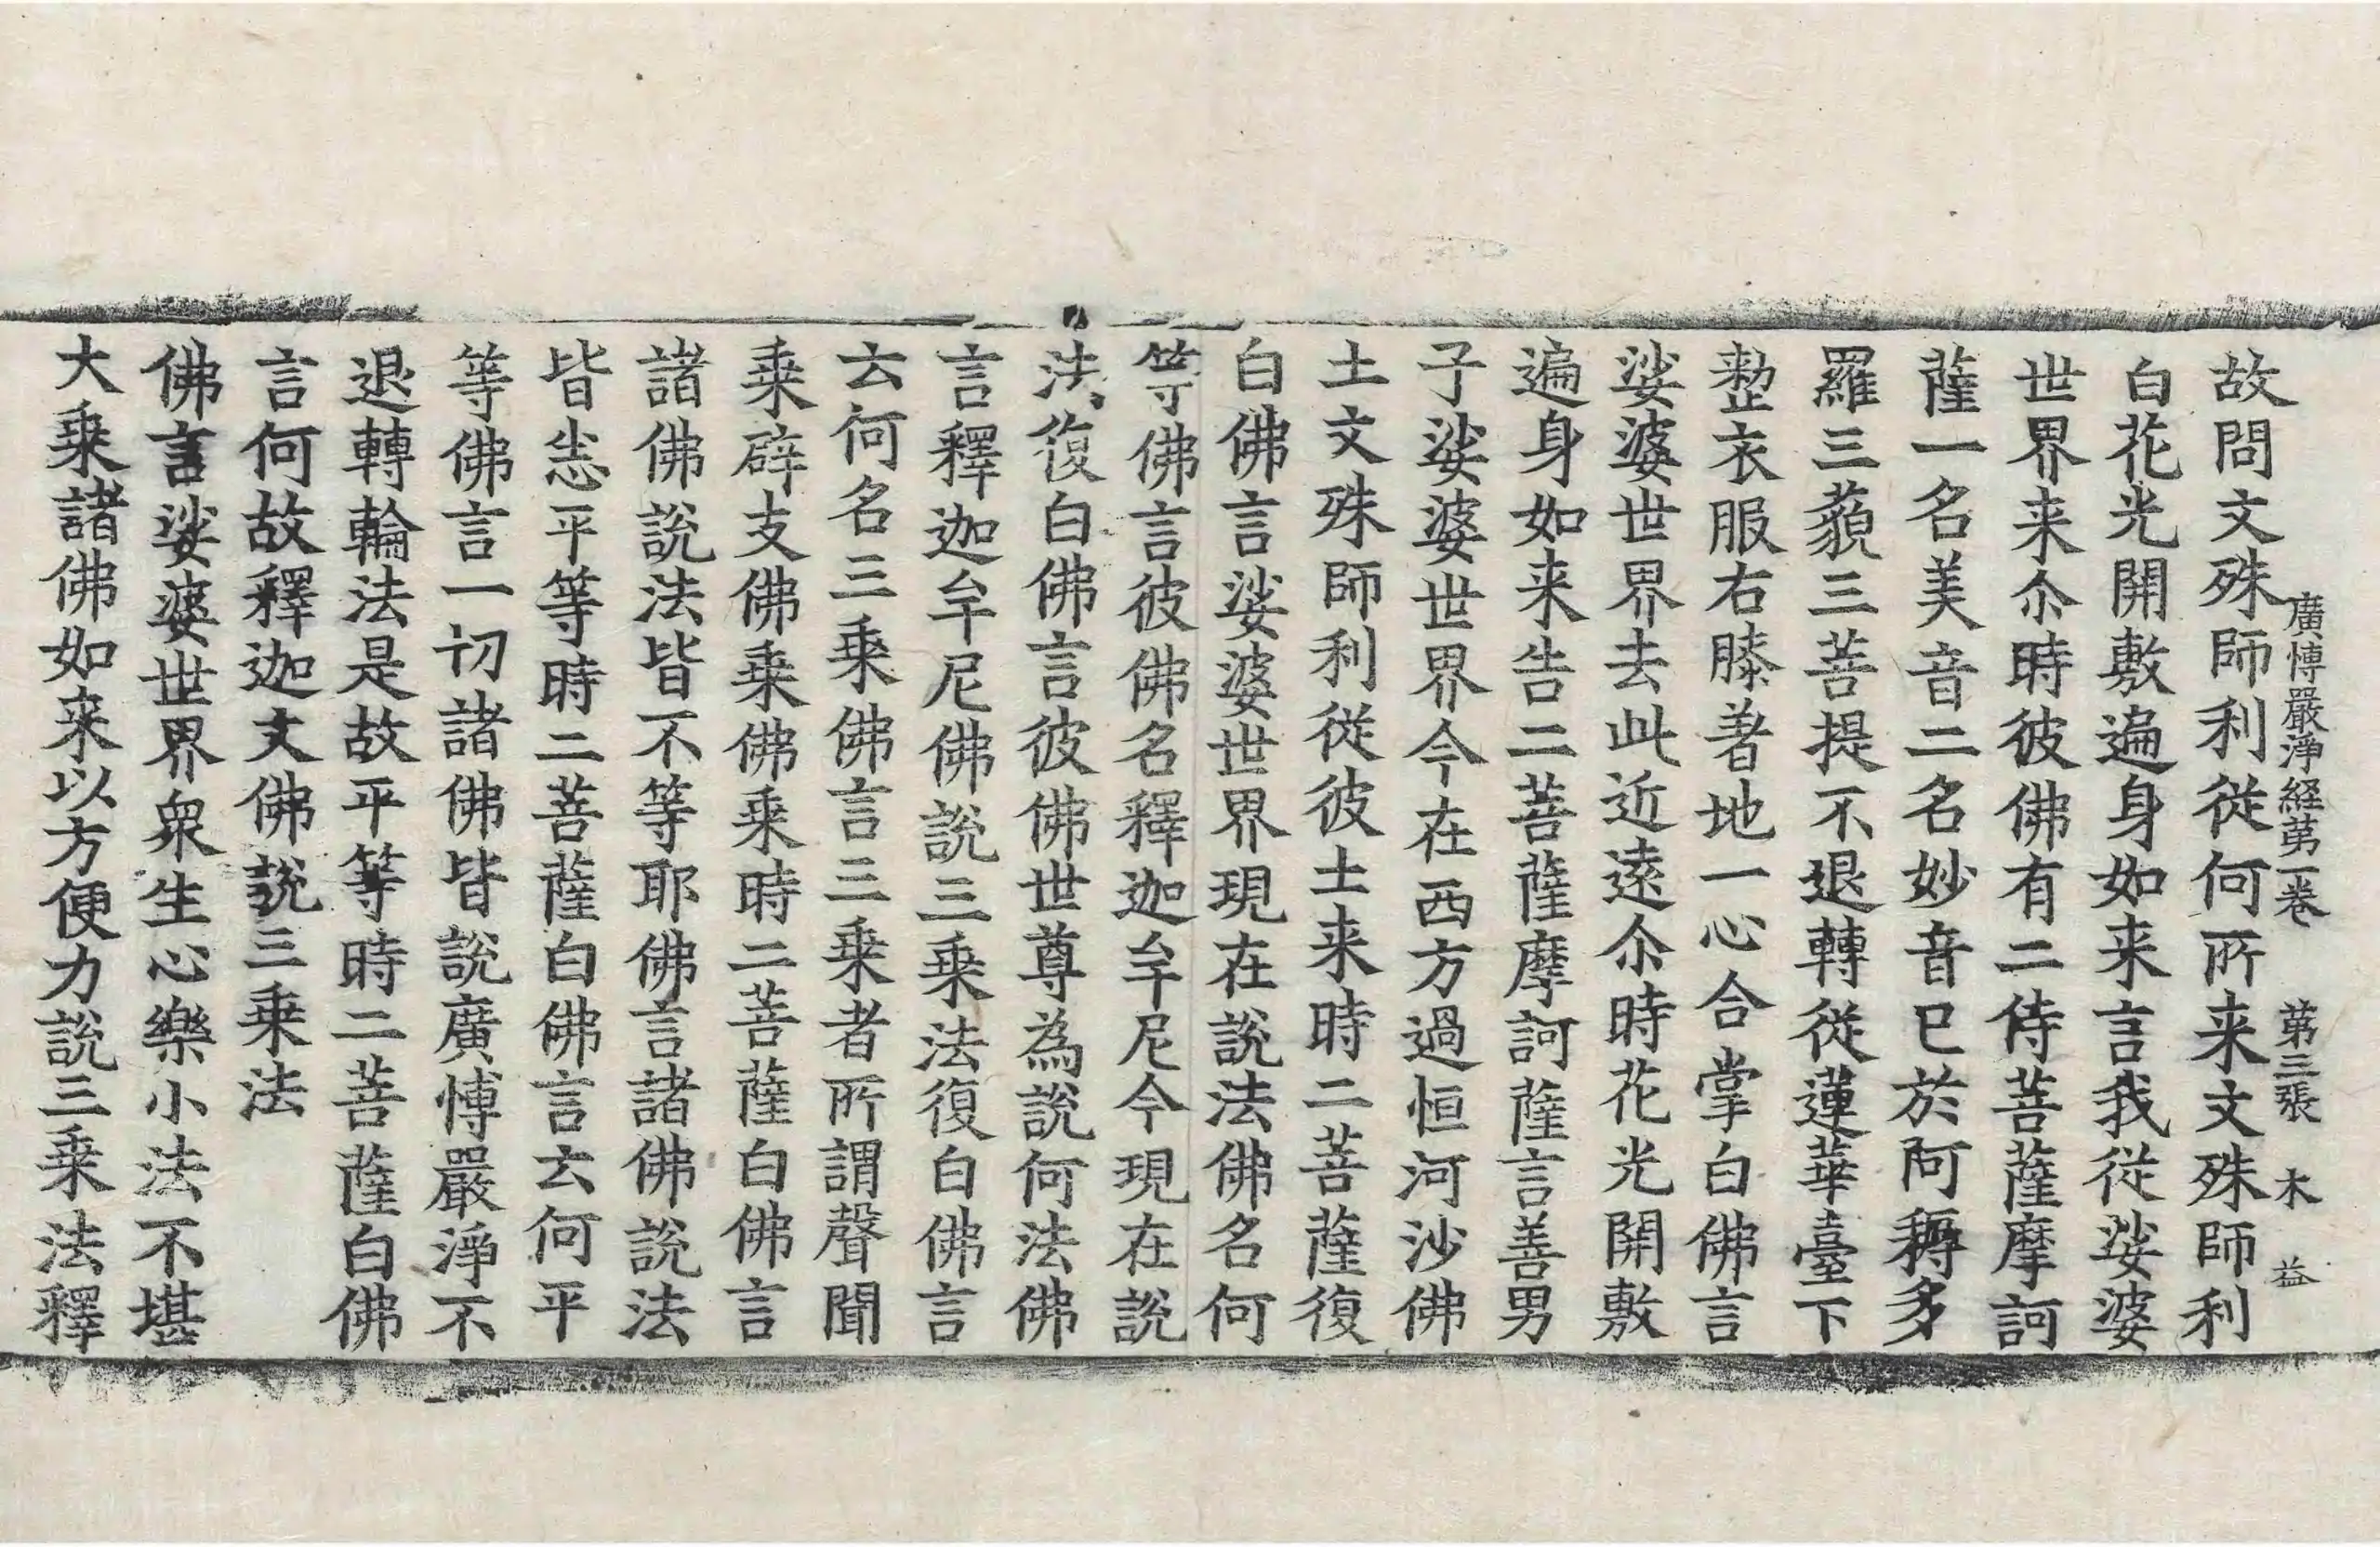 廣博嚴淨経苐一卷　苐三張　木　益
故問文殊師利從何所来文殊師利
白花光開敷遍身如来言我從娑婆
世界来尒時彼佛有二侍菩薩摩訶
薩一名美音二名妙音已於阿耨多
羅三藐三菩提不退轉從蓮華臺下
整衣服右膝著地一心合掌白佛言
娑婆世界去此近遠尒時花光開敷
遍身如来告二菩薩摩訶薩言善男
子娑婆世界今在西方過恒河沙佛
土文殊師利從彼土来時二菩薩復
白佛言娑婆世界現在說法佛名何
等佛言彼佛名釋迦牟尼今現在說
法復白佛言彼佛世尊為說何法佛
言釋迦牟尼佛說三乗法復白佛言
云何名三乗佛言三乗者所謂聲聞
乗辟支佛乗佛乗時二菩薩白佛言
諸佛說法皆不等耶佛言諸佛說法
皆悉平等時二菩薩白佛言云何平
等佛言一切諸佛皆說廣博嚴淨不
退轉輪法是故平等時二菩薩白佛
言何故釋迦文佛說三乗法
佛言娑婆世界衆生心樂小法不堪
大乗諸佛如来以方便力說三乗法釋